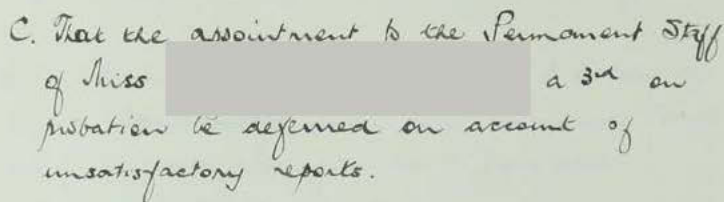 C. That the appointment to the Permanent Staff
of Miss a 3rd on
probation be deferred on account of
unsatisfactory reports.